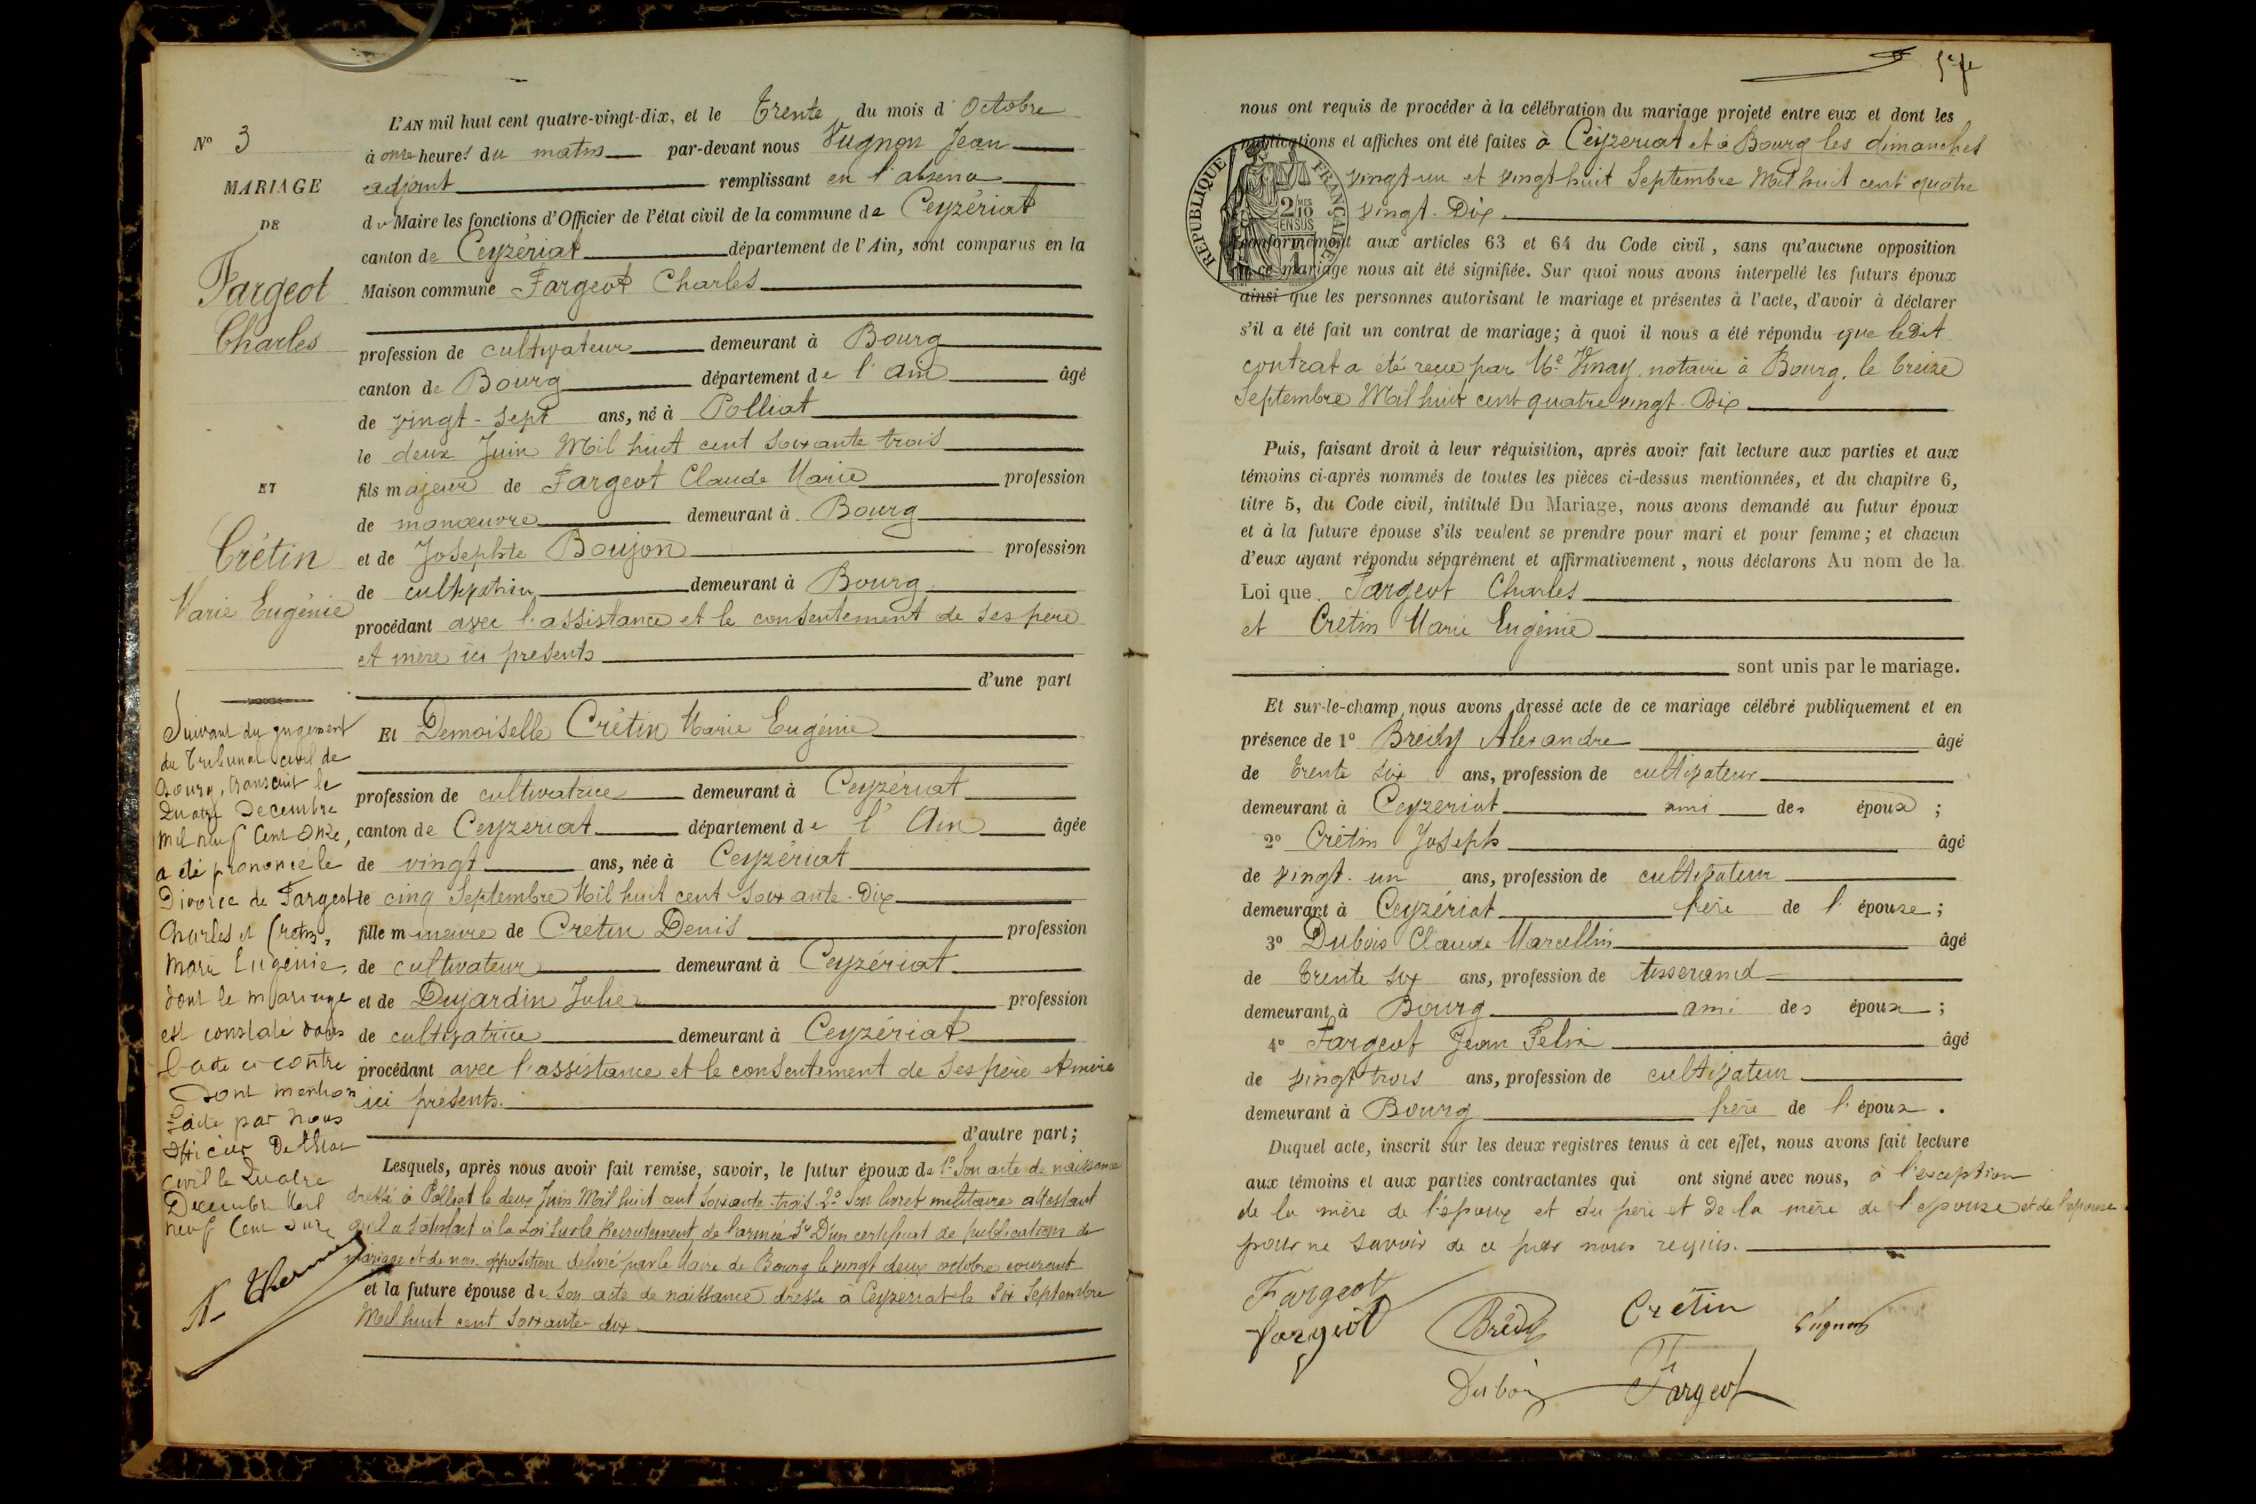 N° 3
MARIAGE
DE
Fargeot
Charles
ET
Crétin
Marie Eugénie
Suivant du jugement
du Tribunal civil de
Bourg, transcrit le
Quatre Decembre
mil neuf Cent Onze,
a été prononcé le
Divorce de Fargeot
Charles et Cretin,
Marie Eugénie,
dont le mariage
est constaté dans
l'acte ci contre
Dont mention
faite par nous
Officier De l'Etat
Civil le Quatre
Decembre Mil
neuf Cent onze
L'AN mil huit cent quatre-vingt-dix, et le Trente du mois d'Octobre
à onze heures du matin par-devant nous Vugnon Jean
adjoint remplissant en l'absence
du Maire les fonctions d'Officier de l'état civil de la commune de Ceyzériat
canton de Ceyzériat département de l'Ain, sont comparus en la
Maison commune Fargeot Charles
profession de cultivateur demeurant à Bourg
canton de Bourg département de l'Ain âgé
de vingt-sept ans, né à Polliat
le deux Juin Mil huit cent soixante trois
fils majeur de Fargeot Claude Marie profession
de manœuvre demeurant à Bourg
et de Josephte Boujon profession
de cultivatrice demeurant à Bourg
procédant avec l'assistance et le consentement de ses père
et mère ici présents
d'une part
Et Demoiselle Crétin Marie Eugénie
profession de cultivatrice demeurant à Ceyzériat
canton de Ceyzeriat département de l'Ain âgée
de vingt ans, née à Ceyzériat
le cinq Septembre Mil huit cent soixante-Dix
fille mineure de Crétin Denis profession
de cultivateur demeurant à Ceyzériat
et de Dujardin Julie profession
de cultivatrice demeurant à Ceyzériat
procédant avec l'assistance et le consentement de ses père et mère
ici présents.
d'autre part;
Lesquels, après nous avoir fait remise, savoir, le futur époux de 1° Son acte de naissance
dressé à Polliat le deux Juin Mil huit cent soixante-trois 2° Son livret militaire attestant
qu'il a satisfait à la Loi sur le Recrutement de l'armée 3° D'un certificat de publications de
mariage et de non opposition délivré par le Maire de Bourg le vingt deux octobre courant
et la future épouse de Son acte de naissance dressé à Ceyzeriat le Six Septembre
Mil huit cent soixante-dix.
nous ont requis de procéder à la célébration du mariage projeté entre eux et dont les
publications et affiches ont été faites à Ceyzeriat et à Bourg les dimanches
vingt-un et vingt-huit Septembre Mil huit cent quatre
vingt-Dix.
RÉPUBLIQUE FRANÇAISE
2/10 EN SUS
conformément aux articles 63 et 64 du Code civil, sans qu'aucune opposition
à ce mariage nous ait été signifiée. Sur quoi nous avons interpellé les futurs époux
ainsi que les personnes autorisant le mariage et présentes à l'acte, d'avoir à déclarer
s'il a été fait un contrat de mariage; à quoi il nous a été répondu que ledit
contrat a été reçu par Me Vinay, notaire à Bourg, le treize
Septembre Mil huit cent quatre vingt-Dix
Puis, faisant droit à leur réquisition, après avoir fait lecture aux parties et aux
témoins ci-après nommés de toutes les pièces ci-dessus mentionnées, et du chapitre 6,
titre 5, du Code civil, intitulé Du Mariage, nous avons demandé au futur époux
et à la future épouse s'ils veulent se prendre pour mari et pour femme; et chacun
d'eux ayant répondu séparément et affirmativement, nous déclarons Au nom de la
Loi que Fargeot Charles
et Crétin Marie Eugénie
sont unis par le mariage.
Et sur-le-champ nous avons dressé acte de ce mariage célébré publiquement et en
présence de 1° Bredy Alexandre âgé
de trente six ans, profession de cultivateur
demeurant à Ceyzeriat ami des époux ;
2° Crétin Joseph âgé
de vingt-un ans, profession de cultivateur
demeurant à Ceyzériat frère de l'épouse ;
3° Dubois Claude Marcellin âgé
de trente six ans, profession de tisserand
demeurant à Bourg ami des époux ;
4° Fargeot Jean Felix âgé
de vingt trois ans, profession de cultivateur
demeurant à Bourg frère de l'époux .
Duquel acte, inscrit sur les deux registres tenus à cet effet, nous avons fait lecture
aux témoins et aux parties contractantes qui ont signé avec nous, à l'exception
de la mère de l'époux et du père et de la mère de l'épouse et de l'épouse
pour ne savoir de ce par nous requis.
Fargeot
Fargeot Brédy Crétin Vugnon
Dubois Fargeot